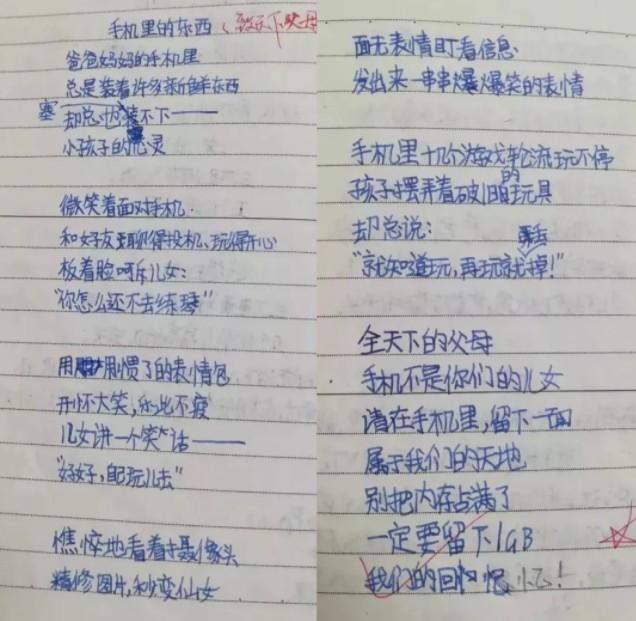 手机里的东西（致天下父母
爸爸妈妈的手机里
总是装着许多新鲜东西
却总也塞不下——
小孩子的心灵
微笑着面对手机
和好友聊得投机、玩得开心
板着脸呵斥儿女：
"你怎么还不去练琴"
用用惯了的表情包
开怀大笑，乐此不疲
儿女讲一个笑话——
"好好，自己玩儿去"
憔悴地看着摄像头
精修图片，秒变仙女
面无表情盯着信息
发出来一串串爆笑的表情
手机里十几个游戏轮流玩不停
孩子摆弄着破旧的玩具
却总说：
"就知道玩，再玩就丢掉！"
全天下的父母
手机不是你们的儿女
请在手机里，留下一面
属于我们的天地
别把内存占满了
一定要留下1GB
我们的回忆！